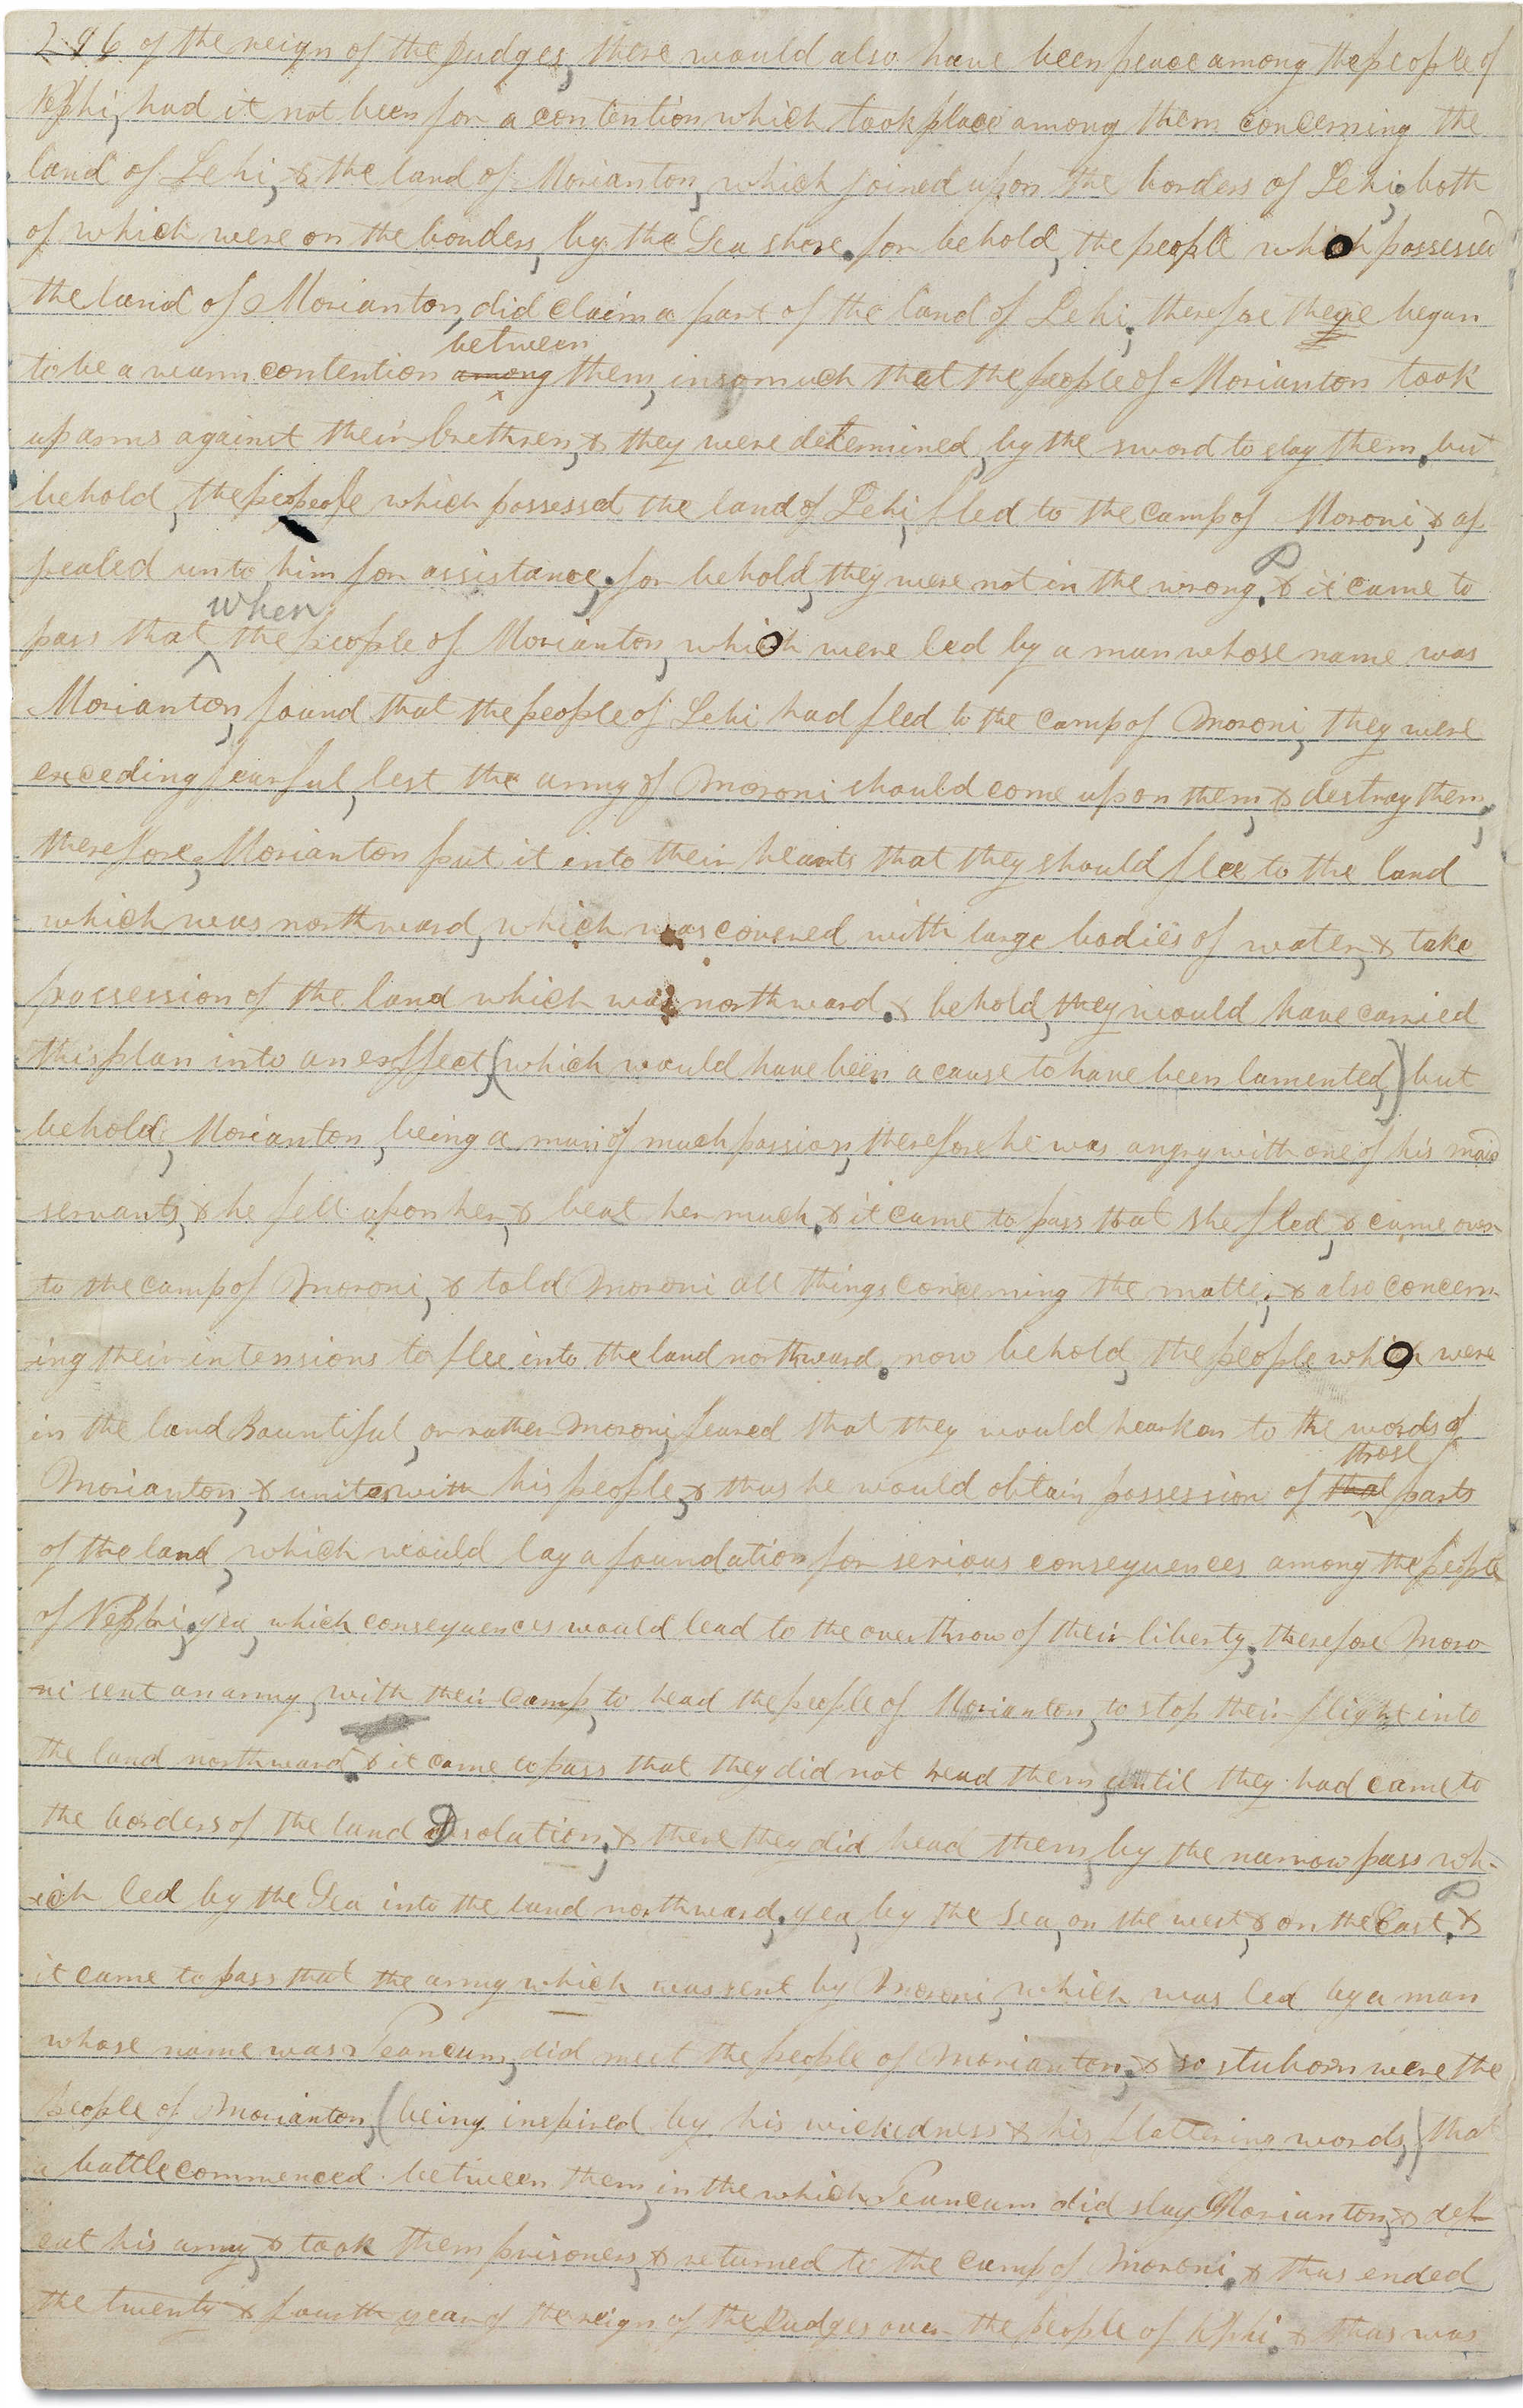 296 of the reign of the Judges, there would also have been peace among the people of
Nephi, had it not been for a contention which took place among them concerning the
land of Lehi, & the land of Morianton, which joined upon the borders of Lehi; both
of which were on the borders, by the Sea shore. for behold, the people which possessed
the land of Morianton, did claim a part of the land of Lehi; therefore there began
between
to be a warm contention among them, insomuch that the people of Morianton took
up arms against their brethren, & they were determined, by the sword to slay them, but
behold, the people which possessed the land of Lehi, fled to the camp of Moroni, & ap
pealed unto him for assistance; for behold, they were not in the wrong. & it came to
when
pass that the people of Morianton, which were led by a man whose name was
Morianton, found that the people of Lehi had fled to the camp of Moroni, they were
exceding fearful, lest the army of Moroni should come upon them, & destroy them,
therefore, Morianton put it into their hearts that they should flee to the land
which was northward, which was covered with large bodies of water, & take
possession of the land which was northward. & behold, they would have carried
this plan into an effect, (which would have been a cause to have been lamented,) but
behold, Morianton, being a man of much passion, therefore he was angry with one of his maid
servants, & he fell upon her, & beat her much. & it came to pass that she fled, & came over
to the camp of Moroni, & told Moroni all things concerning the matter, & also concern-
ing their intensions to flee into the land northward. now behold, the people which were
in the land Bountiful, or rather Moroni, feared that they would hearken to the words of
those
Morianton, & unite with his people, & thus he would obtain possession of that parts
of the land, which would lay a foundation for serious consequences among the people
of Nephi, yea, which consequences would lead to the overthrow of their liberty; therefore Moro
ni sent an army, with their camp, to head the people of Morianton, to stop their flight into
the land northward. & it came to pass that they did not head them, until they had came to
the borders of the land Desolation; & there they did head them, by the narrow pass wh-
ich led by the Sea into the land northward, yea, by the Sea, on the west, & on the East. &
it came to pass that the army which was sent by Moroni, which was led by a man
whose name was Teancum, did meet the people of Morianton; & so stuborn were the
people of Morianton, (being inspired by his wickedness & his flattering words,) that
a battle commenced between them, in the which Teancum did slay Morianton, & def
eat his army, & took them prisoners, & returned to the camp of Moroni. & thus ended
the twenty & fourth year of the reign of the Judges over the people of Nephi. & thus was